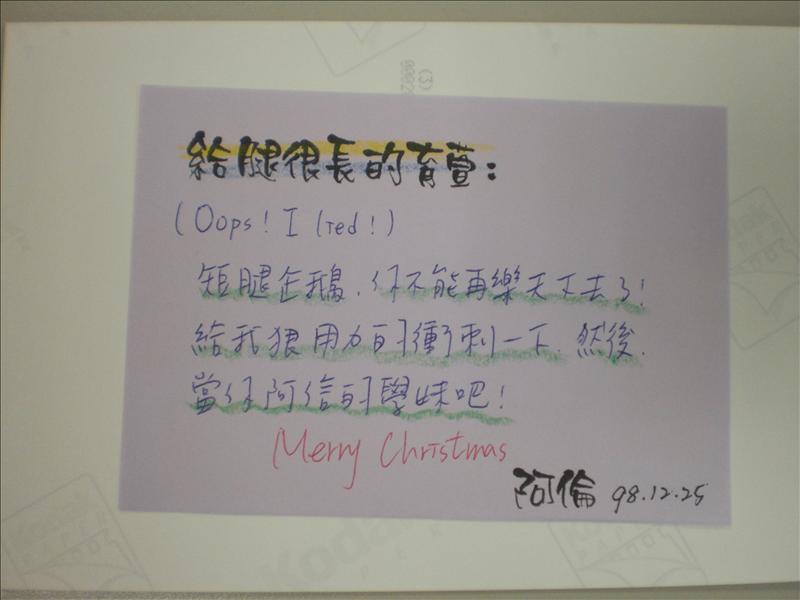 給腿很長的育萱：
(Oops! I lied!)
短腿企鵝，你不能再樂天下去了!
給我狠用力的衝刺一下，然後，
當你阿信的學妹吧!
Merry Christmas
阿倫 98.12.25
Kodak